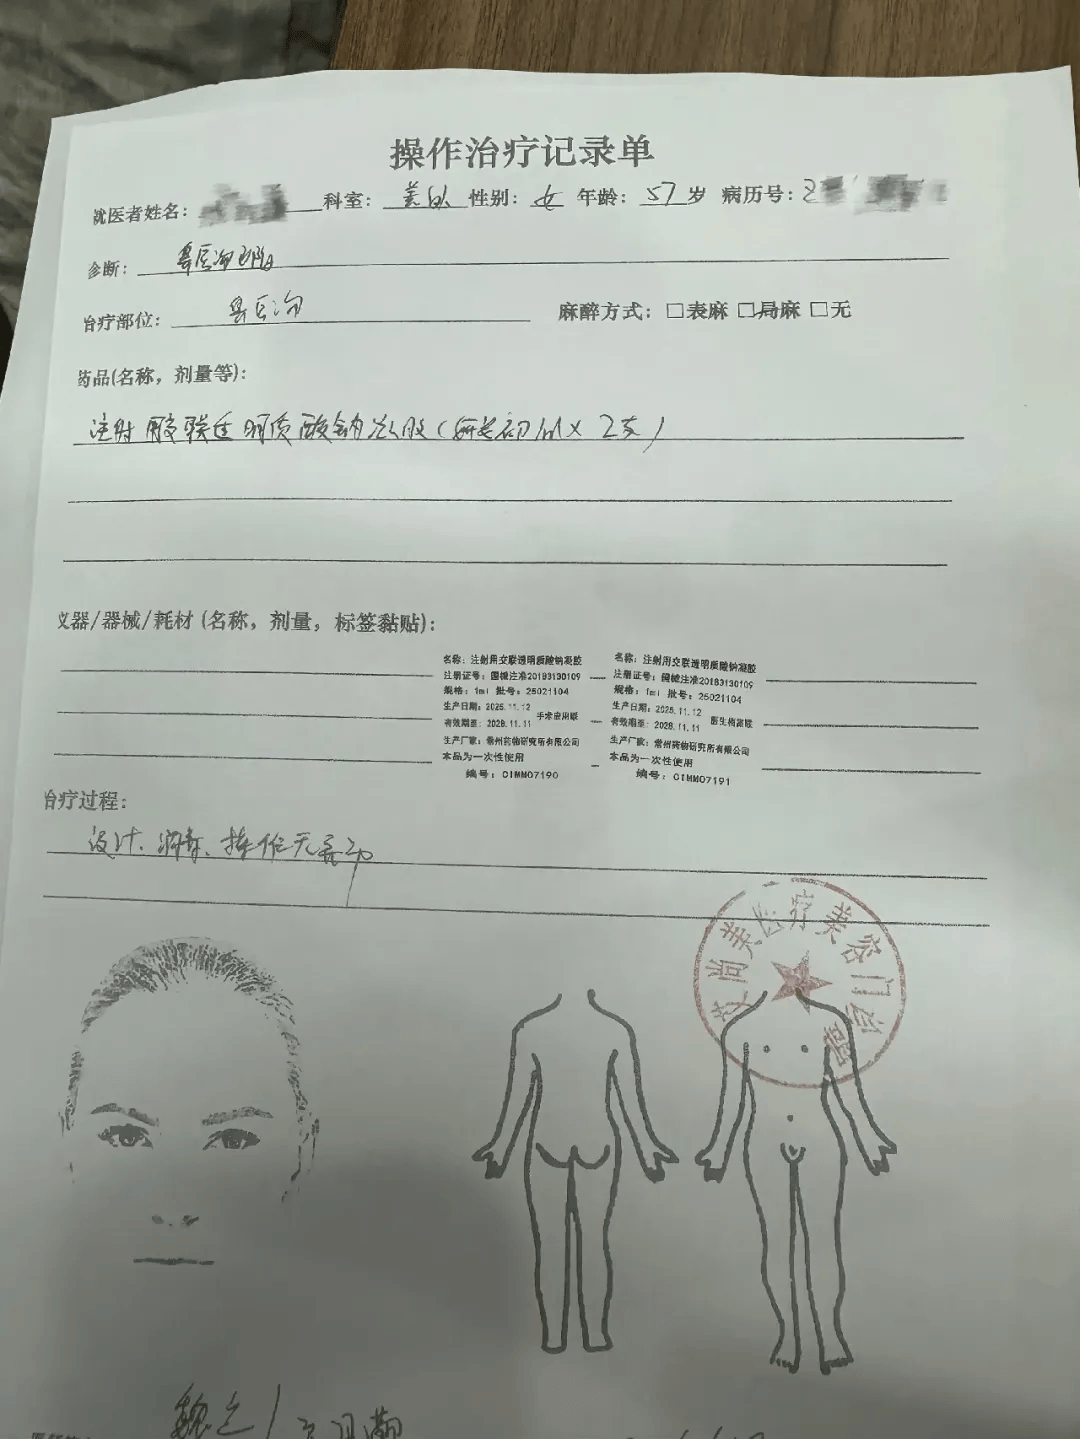 操作治疗记录单
就医者姓名: 科室: 美外 性别: 女 年龄: 57 岁 病历号: 2
诊断: 鼻唇沟凹陷
治疗部位: 鼻唇沟 麻醉方式: □表麻 □局麻 □无
药品(名称，剂量等):
注射用交联透明质酸钠凝胶( 1ml×2支)
仪器/器械/耗材 (名称，剂量，标签黏贴):
名称: 注射用交联透明质酸钠凝胶
注册证号: 国械注准20193130109
规格: 1ml 批号: 25021104
生产日期: 2025.11.12
有效期至: 2028.11.11
生产厂家: 常州药物研究所有限公司
本品为一次性使用
编号: CIMM07190
名称: 注射用交联透明质酸钠凝胶
注册证号: 国械注准20193130109
规格: 1ml 批号: 25021104
生产日期: 2025.11.12
有效期至: 2028.11.11
生产厂家: 常州药物研究所有限公司
本品为一次性使用
编号: CIMM07191
治疗过程:
设计、消毒、操作无
艾尚美医疗美容门诊部